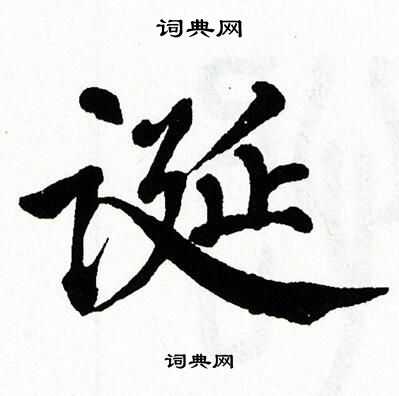 词典网
诞
词典网